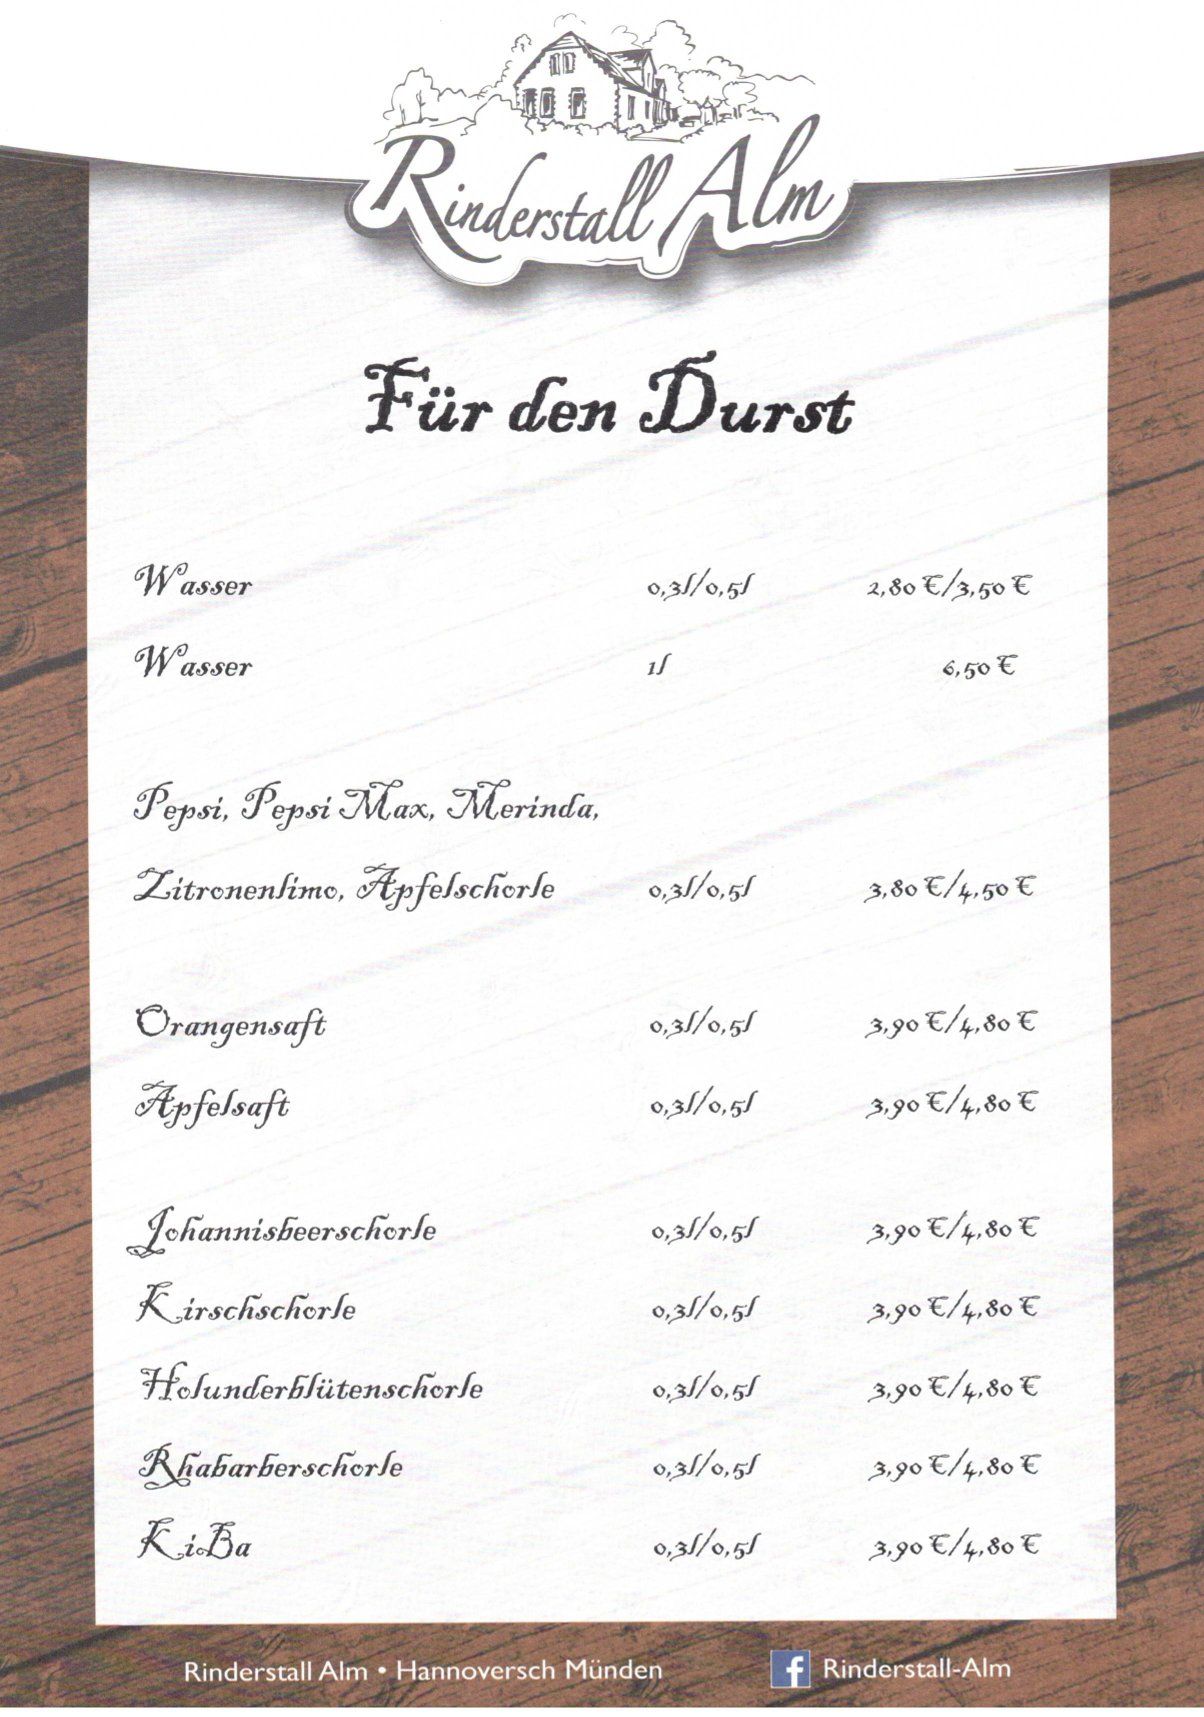 Rinderstall Alm
Für den Durst
Wasser 0,3l/0,5l 2,80 €/3,50 €
Wasser 1l 6,50 €
Pepsi, Pepsi Max, Merinda,
Zitronenlimo, Apfelschorle 0,3l/0,5l 3,80 €/4,50 €
Orangensaft 0,3l/0,5l 3,90 €/4,80 €
Apfelsaft 0,3l/0,5l 3,90 €/4,80 €
Johannisbeerschorle 0,3l/0,5l 3,90 €/4,80 €
Kirschschorle 0,3l/0,5l 3,90 €/4,80 €
Holunderblütenschorle 0,3l/0,5l 3,90 €/4,80 €
Rhabarberschorle 0,3l/0,5l 3,90 €/4,80 €
KiBa 0,3l/0,5l 3,90 €/4,80 €
Rinderstall Alm • Hannoversch Münden f Rinderstall-Alm